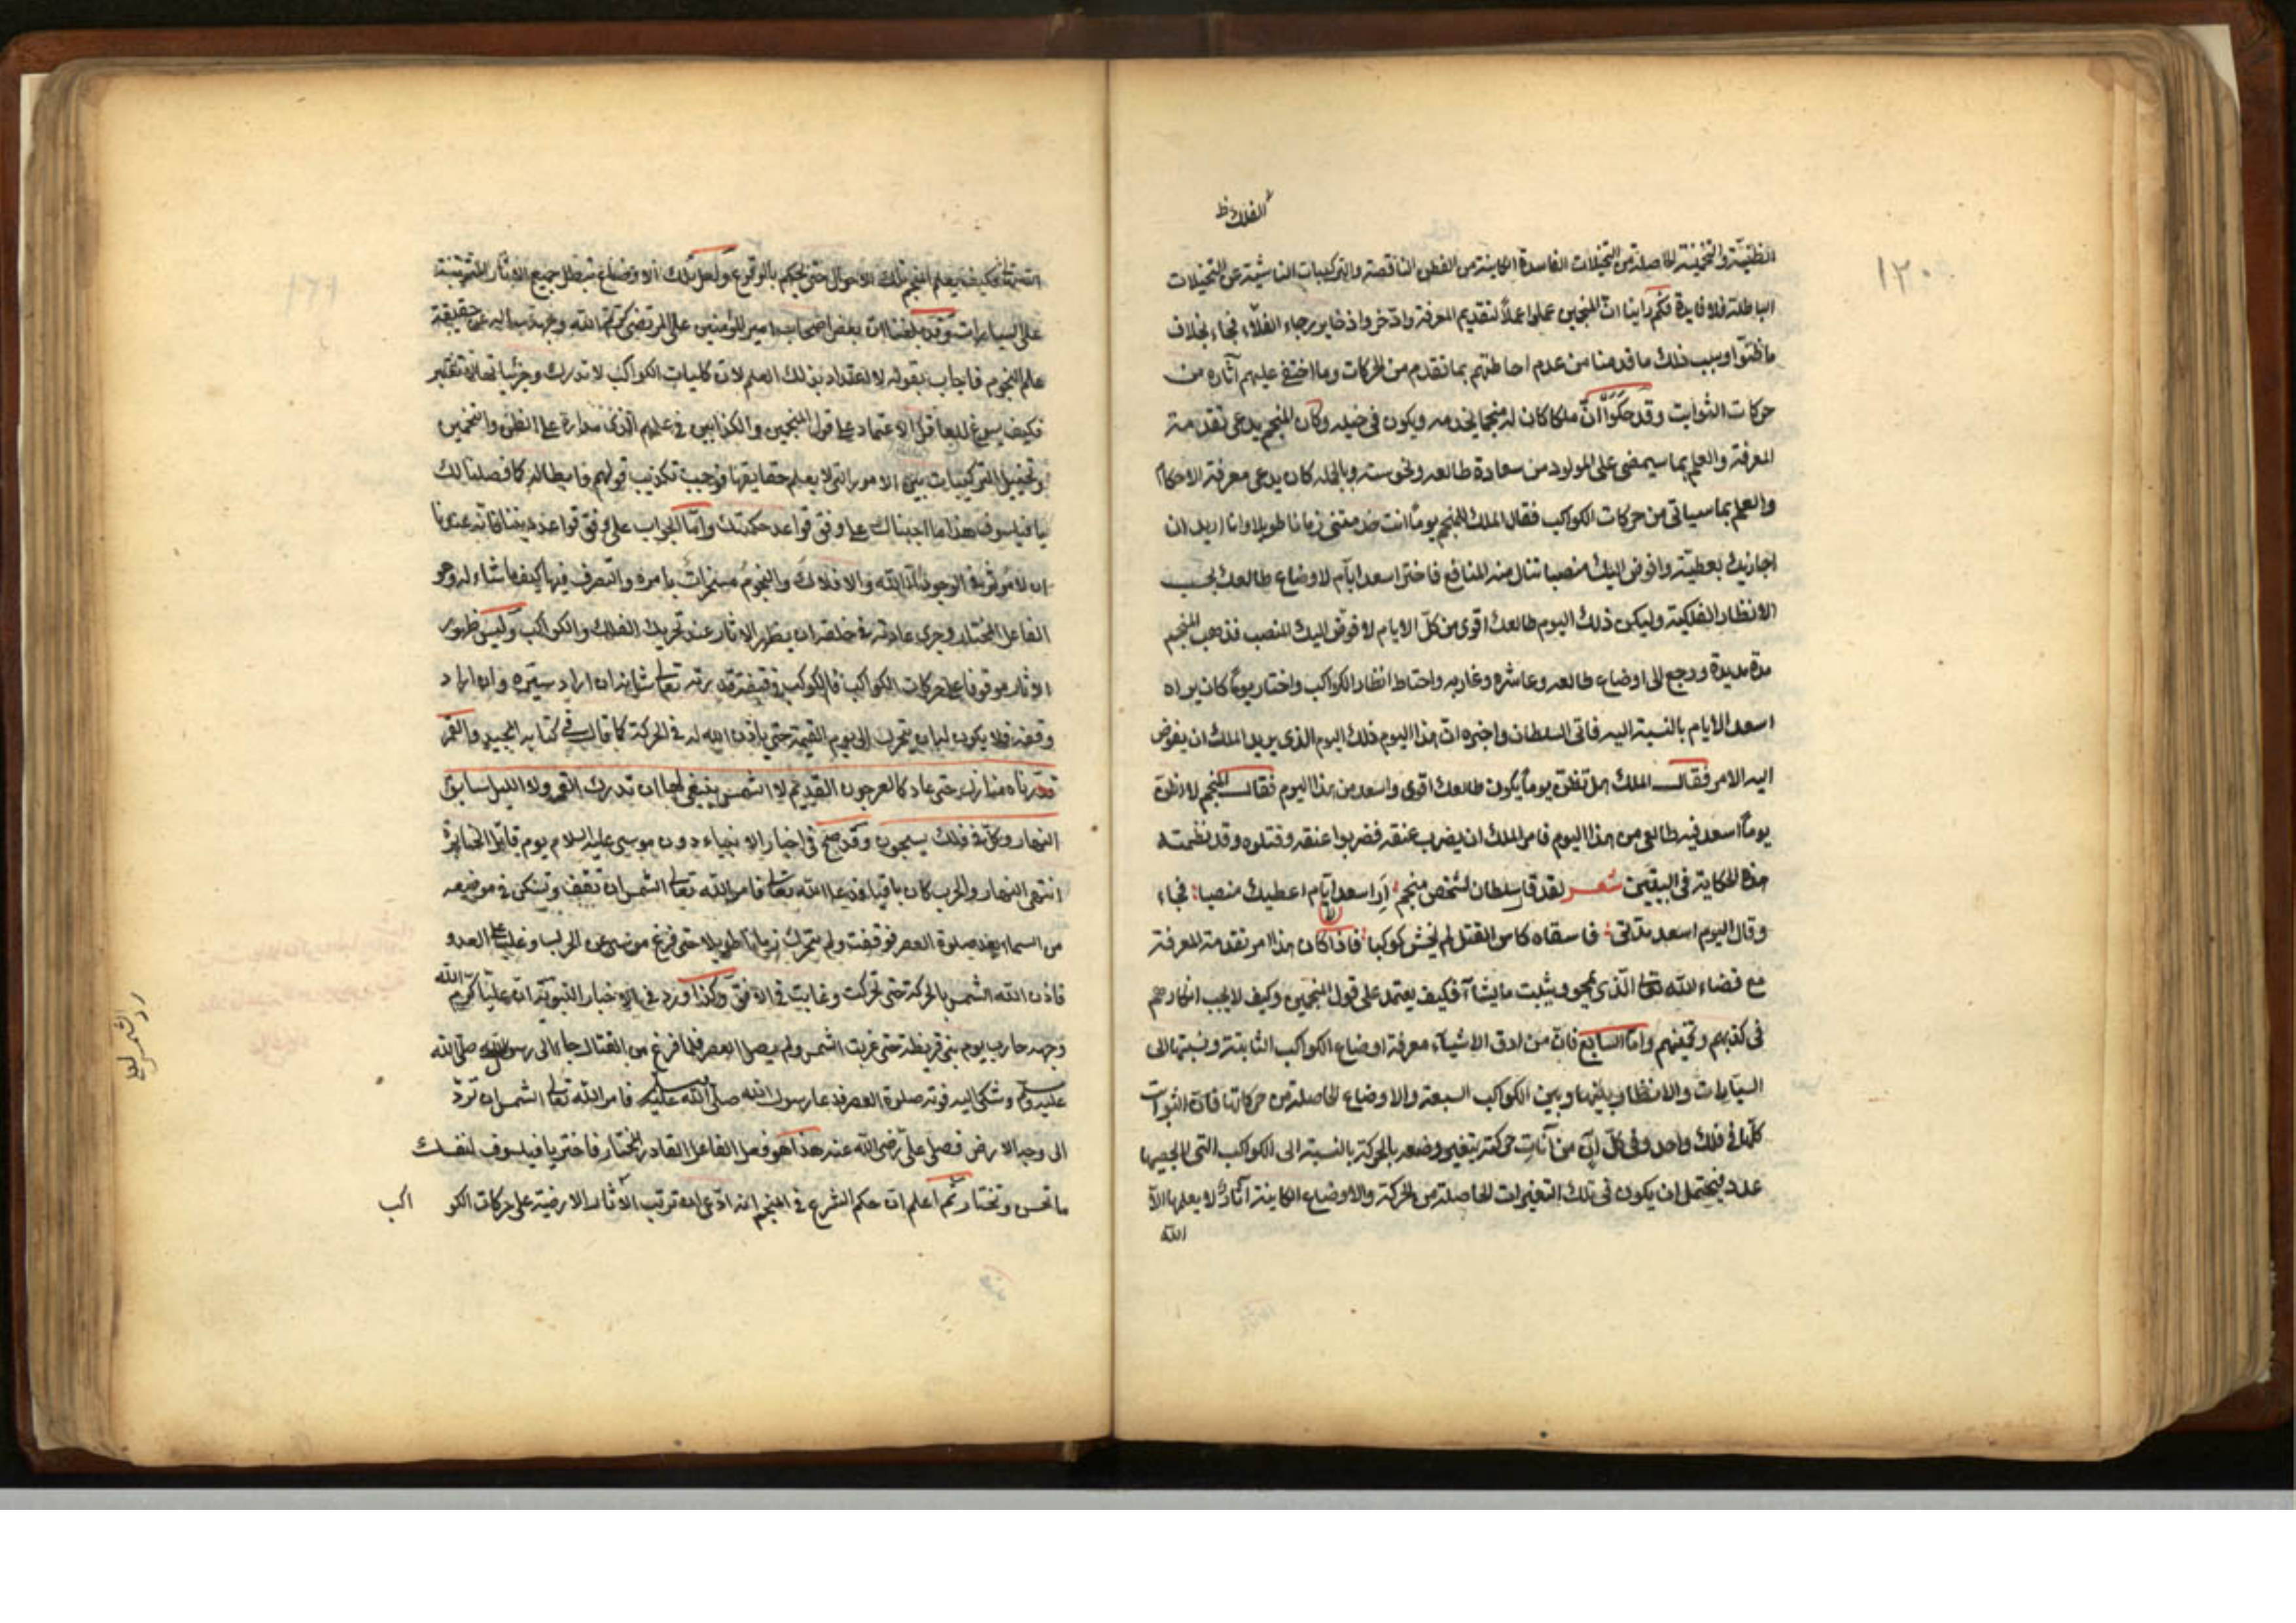 الفلك ظ
١٢٠
الظنية والتخمينية الحاصلة من التخيلات الفاسدة الكاينة من الفطن الناقصة والتركيبات الناشئة عن التخيلات
الباطلة فلا فايدة فكم راينا ان المنجمين عملوا عملا لتقديم المعرفة وادخر واذخاير رجاء الغلاء فجاء بخلاف
ما ظنوا وسبب ذلك ما قدمنا من عدم احاطتهم بما تقدم من الحركات وما اختفى عليهم آثاره من
حركات الثوابت وقد حكوا ان ملكا كان له منجما يخدمه ويكون في خيله وكان المنجم يدعى تقدمة
المعرفة والعلم بما سيمضى على المولود من سعادة طالعه ونحوسته وبالجملة كان يدعى معرفة الاحكام
والعلم بما سياتى من حركات الكواكب فقال الملك للمنجم يوما انت خدمتنى زمانا طويلا وانا اريد ان
اجازيك بعطية وافوض اليك منصبا تنال منه المنافع فاختر اسعد ايام لاوضاع طالعك بحسب
الانظار الفلكية وليكن ذلك اليوم طالعك اقوى من كل الايام لافوض اليك المنصب فذهب المنجم
مدة مديدة ورجع الى اوضاع طالعه وعاشره وغاربه واحتاط انظار الكواكب واختار يوما كان يراه
اسعد الايام بالنسبة اليه فاتى السلطان واخبره ان هذا اليوم ذلك اليوم الذى يريد الملك ان يفوض
اليه الامر فقال الملك هل تظن يوما يكون طالعك اقوى واسعد من هذا اليوم فقال المنجم لا اظن
يوما اسعد فيه طالعى من هذا اليوم فامر الملك ان يضرب عنقه فضربوا عنقه وقتلوه وقد نظمت
هذه الحكاية فى البيتين شعر لقد قال سلطان لشخص منجم أر اسعد ايام اعطيك منصبا فجاء
وقال اليوم اسعد فاسقاه كاس القتل لم يخش كوكبا فاذا كان هذا امر تقدمة المعرفة
مع قضاء الله تعالى الذى يمحو ويثبت ما يشاء فكيف يعتمد على قول المنجمين وكيف لا يجب انكارهم
فى كذبهم وتخمينهم واما السابع فان من ادق الاشياء معرفة اوضاع الكواكب الثابتة ونسبتها الى
السيارات والانظار بينها وبين الكواكب السبعة والاوضاع الحاصلة من حركاتها فان الثوابت
كلها فى فلك واحد وفى كل آن من آنات حركته يتغير وضعه بالحركة بالنسبة الى الكواكب التى لا يحصيها
عدد فيحتمل ان يكون فى تلك التغيرات الحاصلة من الحركة والاوضاع الكاينة آثار لا يعلمها الا
الله
١٢١
الله تعالى فكيف يعلم المنجم تلك الاحوال حتى يحكم بالوقوع ولعل تلك الاوضاع تبطل جميع الاثار المترتبة
على السيارات وقد بلغنا ان بعض اصحاب امير المؤمنين على المرتضى كرم الله وجهه ساله عن حقيقة
علم النجوم فاجاب بقوله لا اعتداد بذلك العلم لان كليات الكواكب لا تدرك وجزئياتها لا تعتبر
فكيف يسوغ للعاقل الاعتماد على قول المنجمين والكذابين فى علمهم الذى مداره على الظن والتخمين
وتخييل التركيبات بين الامور التى لا يعلم حقايقها فوجب تكذيب قولهم وابطاله كما فصلنا لك
يا فيلسوف هذا ما اجبناك على وفق قواعد حكمتك واما الجواب على وفق قواعد ديننا فانه عندنا
ان لا مؤثر فى الوجود الا الله والافلاك والنجوم مسخرات بامره والتصرف فيها كيف ما شاء له وهو
الفاعل المختار وجرى عادته فى خلقه ان يظهر الاثار عند تحريك الفلك والكواكب وليس ظهور
الاثار موقوفا على حركات الكواكب فالكوكب فى قبضة قدرته تعالى شانه ان اراد سيره وان اراد
وقفه فلا يكون له ان يتحرك الى يوم القيمة حتى ياذن الله له فى الحركة كما قال فى كتابه المجيد والقمر
قدرناه منازل حتى عاد كالعرجون القديم لا الشمس ينبغى لها ان تدرك القمر ولا الليل سابق
النهار وكل فى فلك يسبحون وقد صح فى اخبار الانبياء دون موسى عليه السلام يوم قاتل الجبابرة
انتهى النهار والحرب كان باقيا فدعا الله تعالى فامر الله تعالى الشمس ان تقف وتسكن فى موضعه
من السماء بعد صلوة العصر فوقفت ولم يتحرك زمانا طويلا حتى فرغ موسى عن الحرب وغلب على العدو
فاذن الله الشمس بالحركة حتى تحركت وغابت فى الافق وكذا ورد فى الاخبار النبوية ان عليا كرم الله
وجهه حارب يوم بنى قريظة حتى غربت الشمس ولم يصل العصر فلما فرغ من القتال جاء الى رسول الله صلى الله
عليه وسلم وشكى اليه فوته صلوة العصر فدعا رسول الله صلى الله عليه وسلم فامر الله تعالى الشمس ان ترد
الى وجه الارض فصلى على رضى الله عنه هذا هو فعل الفاعل القادر المختار فاختر يا فيلسوف لنفسك
ما تحسن وتختار ثم اعلم ان حكم الشرع فى المنجم انه ادعى انه ترتب الآثار الارضية على حركات الكو اكب
رد الشمس لعلى